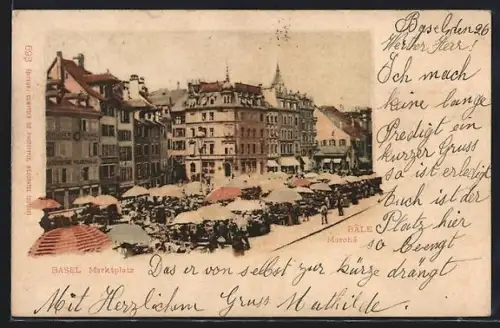 Basel den 26
Werter Herr!
Ich mach
keine lange
Predigt ein
kurzer Gruss
so ist erledigt
Auch ist der
Platz hier
so beengt
Das er von selbst zur kürze drängt
Mit Herzlichem Gruss Mathilde.
BÂLE
Marché
BASEL Marktplatz
693